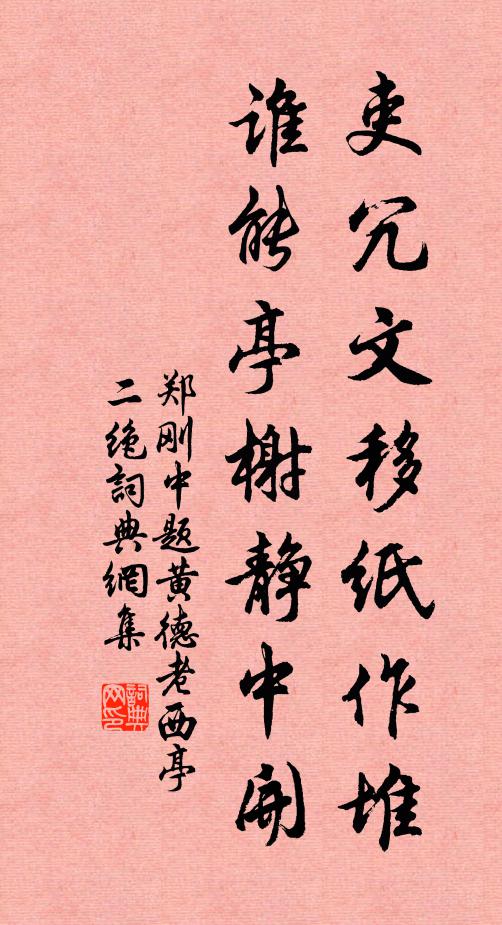 吏冗文移纸作堆
谁能亭榭静中開
郑刚中题黄德老西亭
二绝詞典網集
詞典
网印